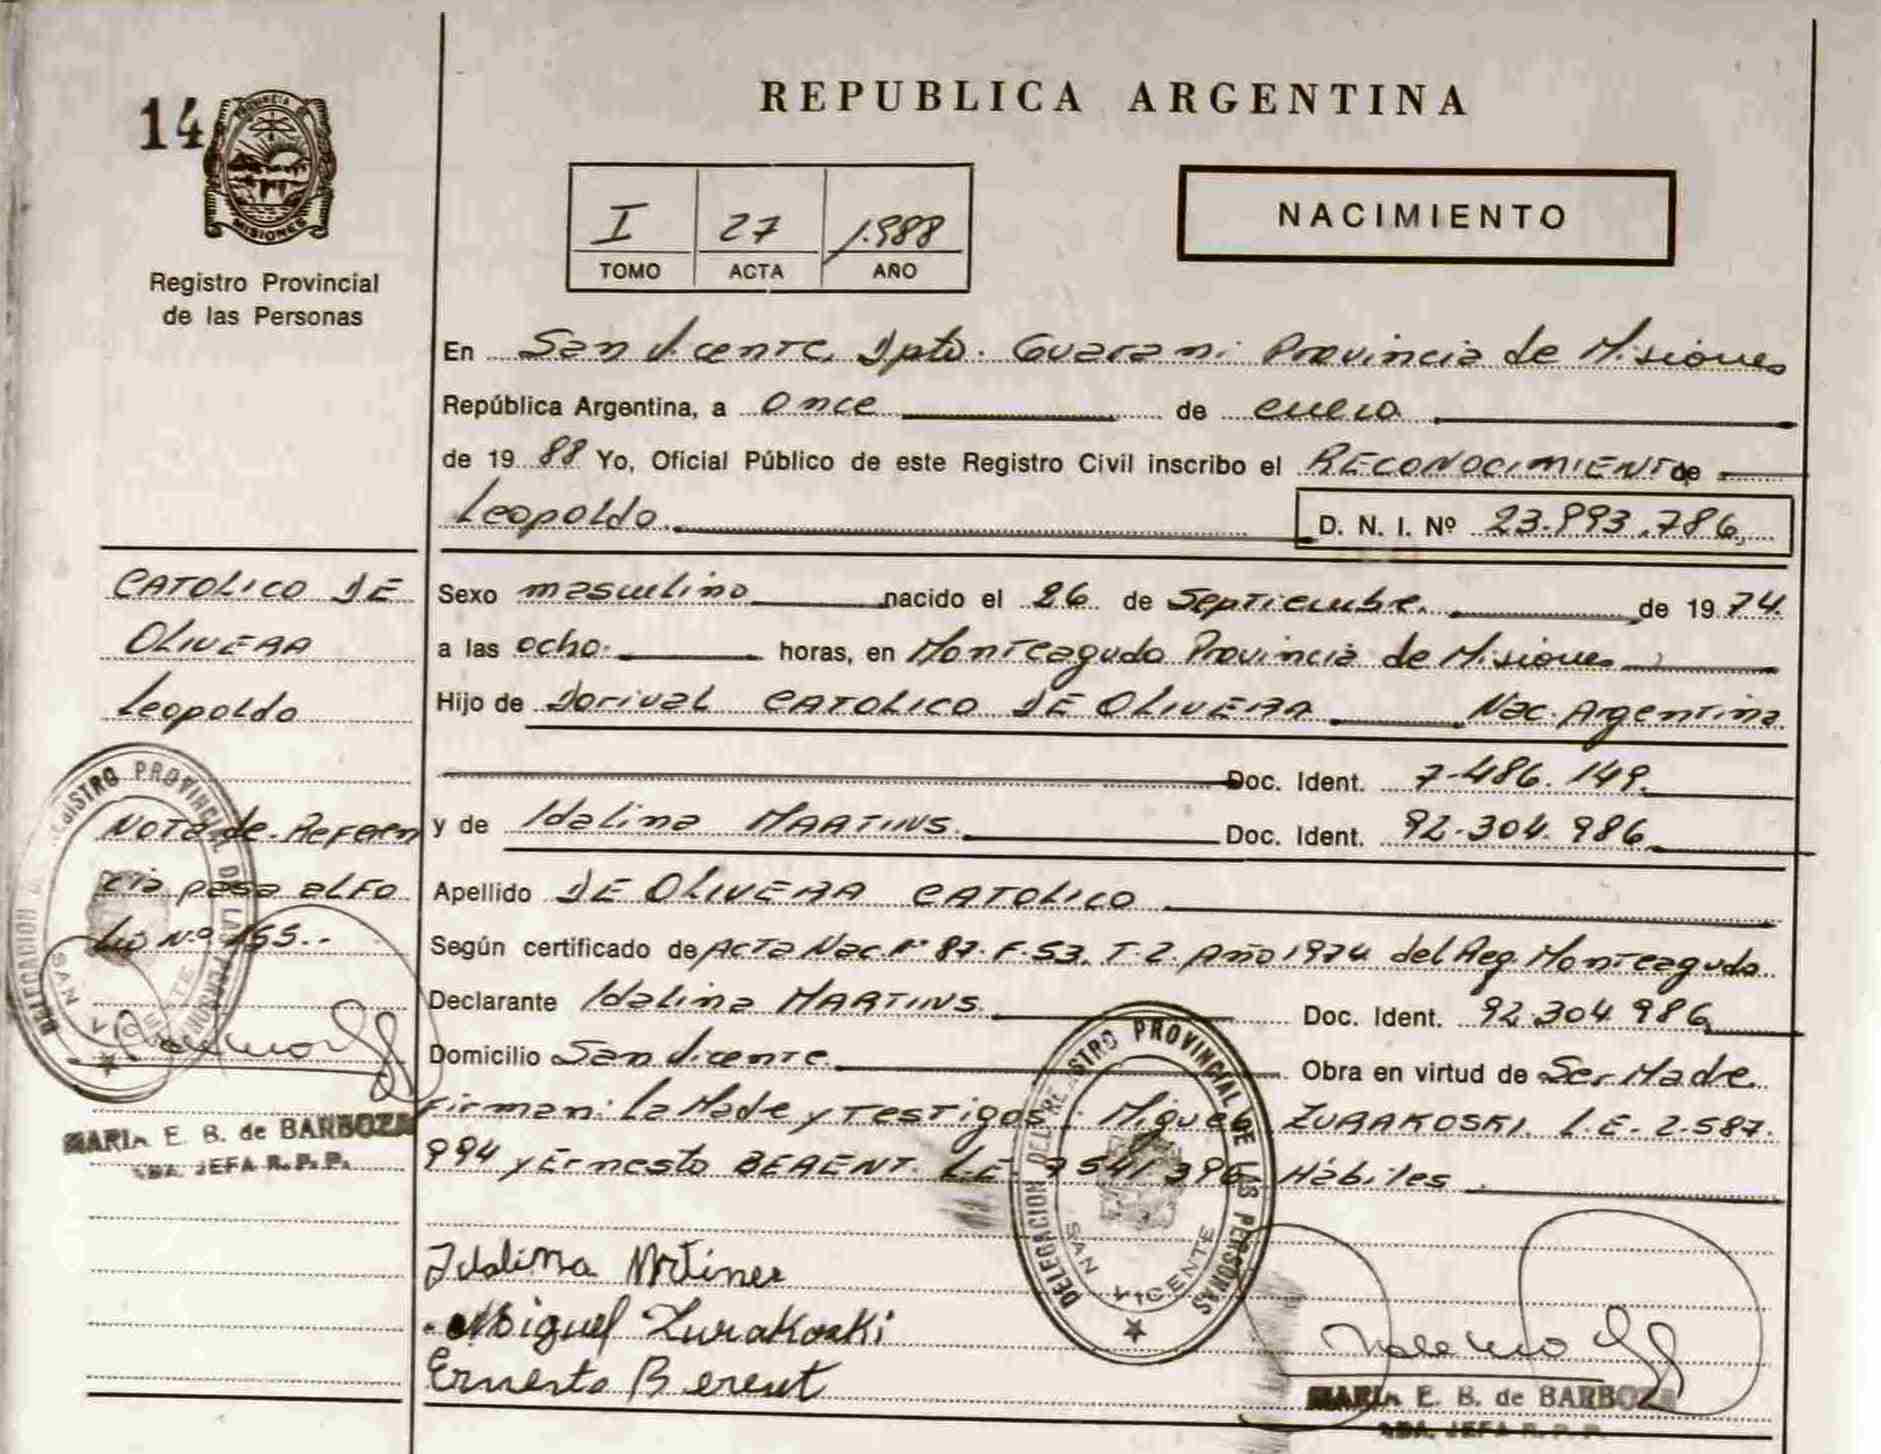 REPUBLICA ARGENTINA
14
PROVINCIA DE
MISIONES
Registro Provincial
de las Personas
I 27 1.988
TOMO ACTA AÑO
NACIMIENTO
En San Vicente, Dpto. Guarani Provincia de Misiones
República Argentina, a once de enero
de 19 88 Yo, Oficial Público de este Registro Civil inscribo el RECONOCIMIENTO de
Leopoldo. D. N. I. Nº 23.993.786.
CATOLICO DE
OLIVERA
Leopoldo
Sexo masculino nacido el 26 de Septiembre. de 19 74.
a las ocho. horas, en Monteagudo Provincia de Misiones
Hijo de Dorival CATOLICO DE OLIVERA Nac. Argentina
Doc. Ident. 7.486.149.
y de Idalina MARTINS. Doc. Ident. 92.304.986.
Apellido DE OLIVERA CATOLICO
Según certificado de Acta Nac. Nº 87. F. 53. T. 2. Año 1974 del Reg. Monteagudo
Declarante Idalina MARTINS. Doc. Ident. 92.304.986
Domicilio San Vicente. Obra en virtud de Ser Madre
Firman: La Madre y Testigos: Miguel ZURAKOSKI. L.E. 2.587.
994 y Ernesto BERENT. L.E. 7541396 Hábiles
Nota de Referen
cia pasa al Fo
lio Nº 155..
DELEGACION DEL REGISTRO PROVINCIAL DE LAS PERSONAS
SAN VICENTE
MARIA E. B. de BARBOZA
JEFA R. P. P.
DELEGACION DEL REGISTRO PROVINCIAL DE LAS PERSONAS
SAN VICENTE
Idalina
Miguel Zurakoski
Ernesto Berent
MARIA E. B. de BARBOZA
JEFA R. P. P.